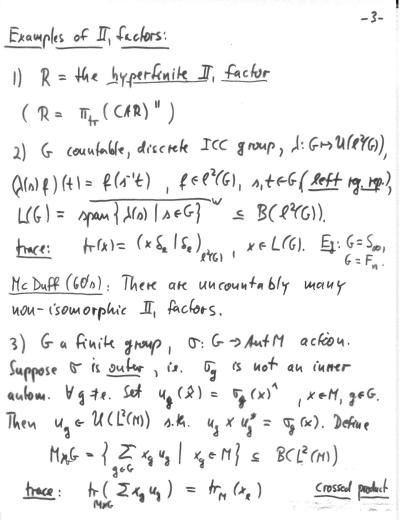 -3-
Examples of II₁ factors:
1) R = the hyperfinite II₁ factor
( R = π_tr (CAR)" )
2) G countable, discrete ICC group, λ: G ↦ U(ℓ²(G)),
(λ(s)f)(t) = f(s⁻¹t) , f ∈ ℓ²(G), s,t ∈ G (left reg. rep.),
L(G) = span{λ(s) | s ∈ G}^w ⊆ B(ℓ²(G)).
trace: tr(x) = (x δ_e | δ_e)_ℓ²(G) , x ∈ L(G). Eg: G = S∞,
G = F_n.
Mc Duff (60's): There are uncountably many
non-isomorphic II₁ factors.
3) G a finite group, σ: G → Aut M action.
Suppose σ is outer, i.e. σ_g is not an inner
autom. ∀ g ≠ e. Set u_g(x̂) = σ_g(x)^ , x ∈ M, g ∈ G.
Then u_g ∈ U(L²(M)) s.th. u_g x u_g* = σ_g(x). Define
M⋊G = { Σ_{g∈G} x_g u_g | x_g ∈ M } ⊆ B(L²(M))
trace: tr_{M⋊G}(Σ x_g u_g) = tr_M(x_e) Crossed product